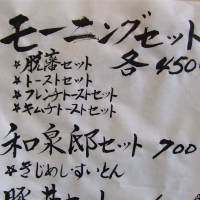 モーニングセット
各 450
☆脱藩セット
☆トーストセット
☆フレンチトーストセット
☆キムチトーストセット
和泉邸セット 700
☆きじめし・すいとん
豚丼セット